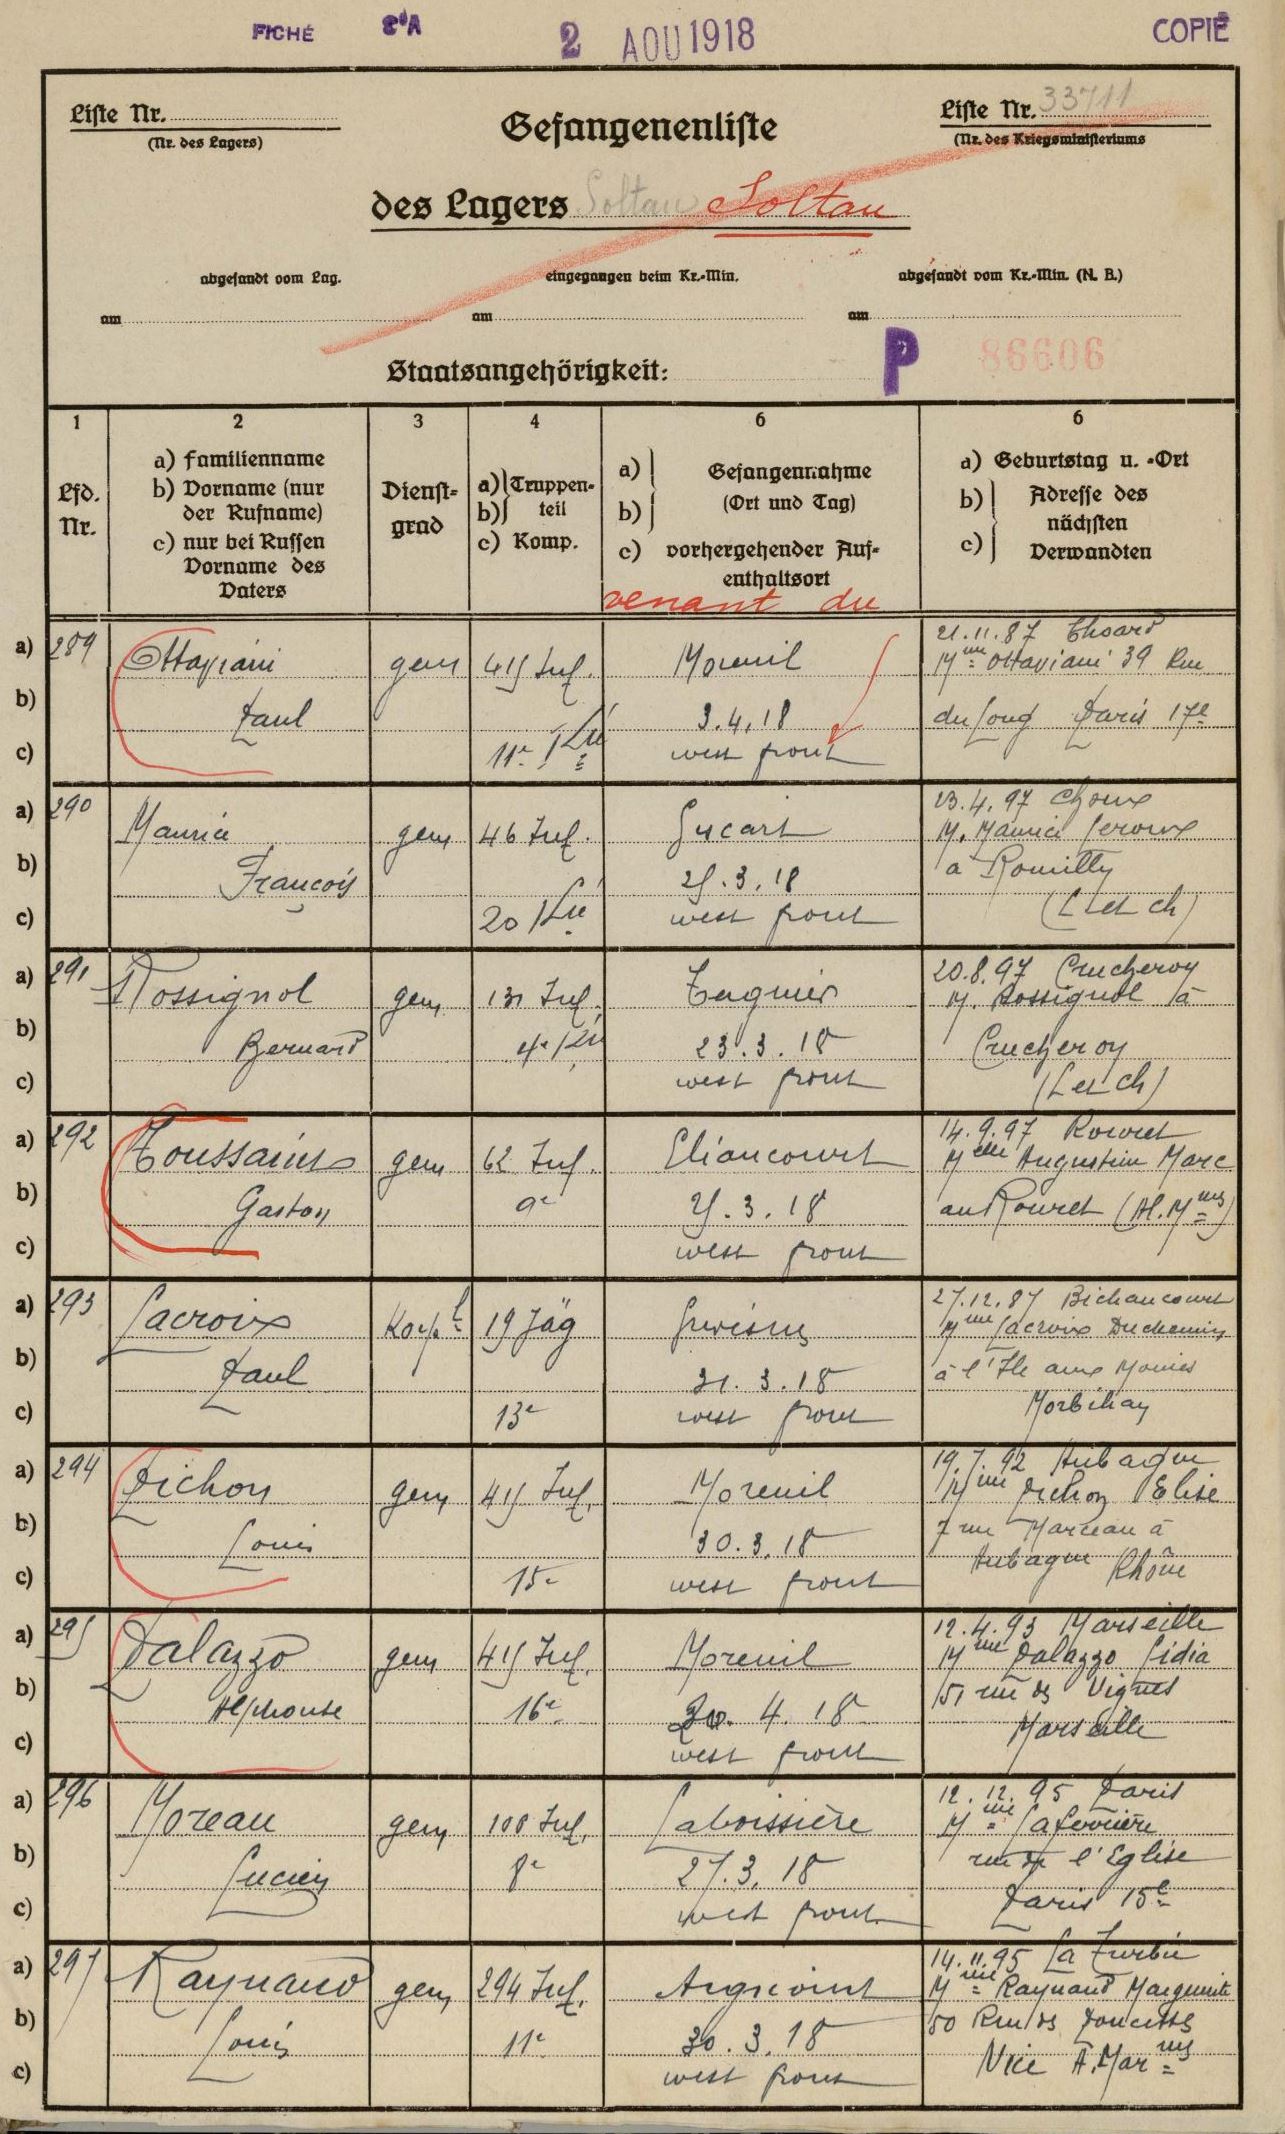 FICHÉ
2 AOU 1918
COPIE
Liste Nr.
(Nr. des Lagers)
Gefangenenliste
Liste Nr. 33711
(Nr. des Kriegsministeriums
des Lagers Soltau Soltau
abgesandt vom Lag.
eingegangen beim Kr.-Min.
abgesandt vom Kr.-Min. (N. B.)
am
am
am
Staatsangehörigkeit:
P 86606
1
2
3
4
6
6
Lfd. Nr.
a) Familienname
b) Vorname (nur
der Rufname)
c) nur bei Russen
Vorname des
Vaters
Dienst-
grad
a) Truppen-
b) teil
c) Komp.
a) Gefangennahme
b) (Ort und Tag)
c) vorhergehender Auf-
enthaltsort
venant du
a) Geburtstag u. -Ort
b) Adresse des
nächsten
c) Verwandten
a) 289 Ottaviani gem 415 Inf. Moreuil 21.11.87 Thoard
Mme Ottaviani 39 Rue
b) Paul 3.4.18 du Paris 17e
c) 11e west front
a) 290 Maurice gem 46 Inf. 23.4.97 Choue
M. Maurice Leroux
b) François 25.3.18 à Romilly
c) 20 west front (L et ch)
a) 291 Rossignol gem 131 Inf. Tergnier 20.8.97 Crucheroy
M. Rossignol à
b) Bernard 4e 23.3.18 Crucheroy
c) west front (L et Ch)
a) 292 Toussaint gem 62 Inf. Eliancourt 14.9.97 Rouret
Augustin Marc
b) Gaston 9e 25.3.18 au Rouret (Al. Mmes)
c) west front
a) 293 Lacroix Korpl 19 Jäg 27.12.87 Bichancourt
Mme Lacroix Duchemin
b) Paul 21.3.18 à l'Ile aux Moines
c) 13e west front Morbihan
a) 294 Pichon gem 415 Inf. Moreuil 19.7.92 Aubagne
Mme Pichon Elise
b) Louis 30.3.18 7 rue Marceau à
c) 15e west front Aubagne Rhône
a) 295 Palazzo gem 415 Inf. Moreuil 12.4.93 Marseille
Mme Palazzo Lidia
b) Alphonse 16e 4.18 51 rue des Vignes
c) west front Marseille
a) 296 Moreau gem 108 Inf. Laboissière 12.12.95 Paris
Mme Laferrière
b) Lucien 8e 27.3.18 rue de l'Eglise
c) west front Paris 15e
a) 297 Raynaud gem 294 Inf. 14.11.95 La Turbie
Mme Raynaud Marguerite
b) Louis 11e 30.3.18 50 Rue des
c) west front Nice A. Mar mes